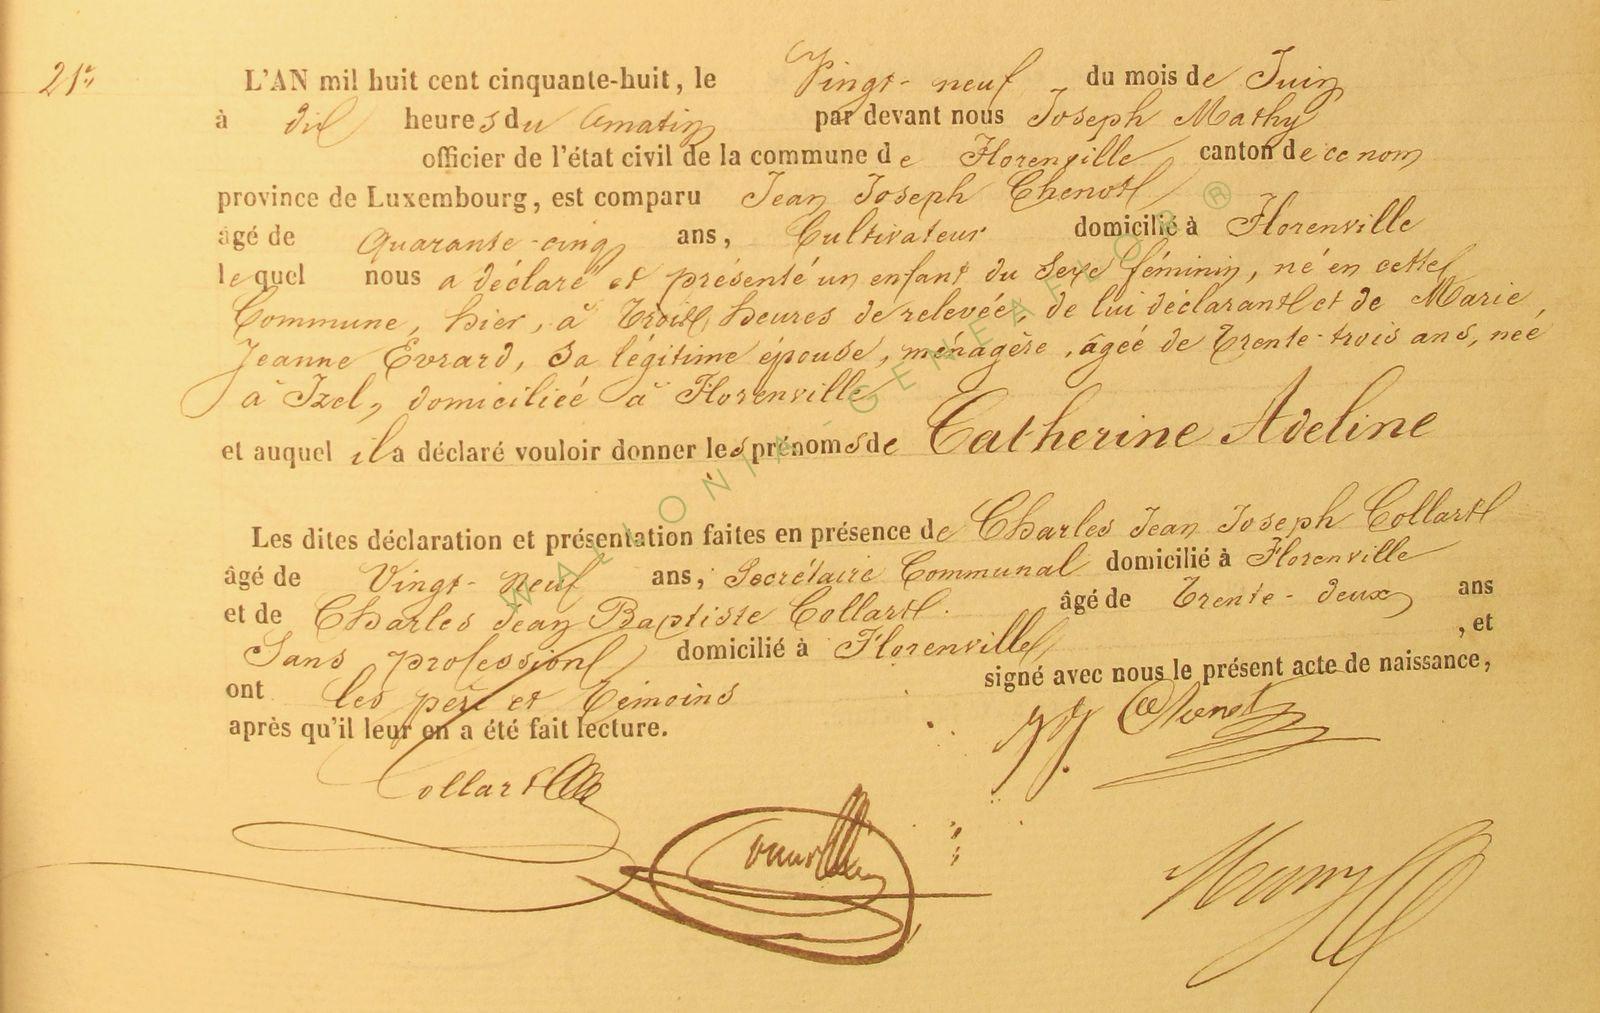 21e
L'AN mil huit cent cinquante-huit, le Vingt-neuf du mois de Juin
à dix heures du matin par devant nous Joseph Mathy
officier de l'état civil de la commune de Florenville canton de ce nom
province de Luxembourg, est comparu Jean Joseph Chenot
âgé de quarante-cinq ans, Cultivateur domicilié à Florenville
lequel nous a déclaré et présenté un enfant du sexe féminin, né en cette
Commune, hier, à trois heures de relevée, de lui déclarant et de Marie
Jeanne Evrard, sa légitime épouse, ménagère, âgée de trente-trois ans, née
à Izel, domiciliée à Florenville
et auquel il a déclaré vouloir donner les prénoms de Catherine Adeline
Les dites déclaration et présentation faites en présence de Charles Jean Joseph Collart
âgé de Vingt-neuf ans, Secrétaire Communal domicilié à Florenville
et de Charles Jean Baptiste Collart âgé de trente-deux ans
Sans profession domicilié à Florenville, et
ont les père et témoins signé avec nous le présent acte de naissance,
après qu'il leur en a été fait lecture.
JJ. Chenot
Collart
WALLONIA-GENEAFLOR®